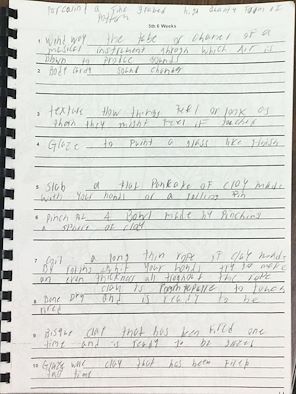 Porcealn a fine Grained high Quality Form of
Pottery
5th 6 Weeks
1 Wind way the tube or channel of a
musical instrument through which Air is
blown to Produce Sounds
2 Body Sound Chamber
3 texture How things Feel or look as
though they might Feel if touched
4 Glaze to Paint a glass like Finish
5 Slab a flat Pankake of clay made
with your hands or a rolling Pin
6 Pinch A Bowl made by Pinching
a of clay
7 Coil a long thin rope of clay made
by your hands try to make
an even thickness all the rope
clay is to touch
8 Bone Dry and is ready to be
fired
9 Bisque clay that has been fired one
time and is ready to be
10 Glaze clay that has been fired
time